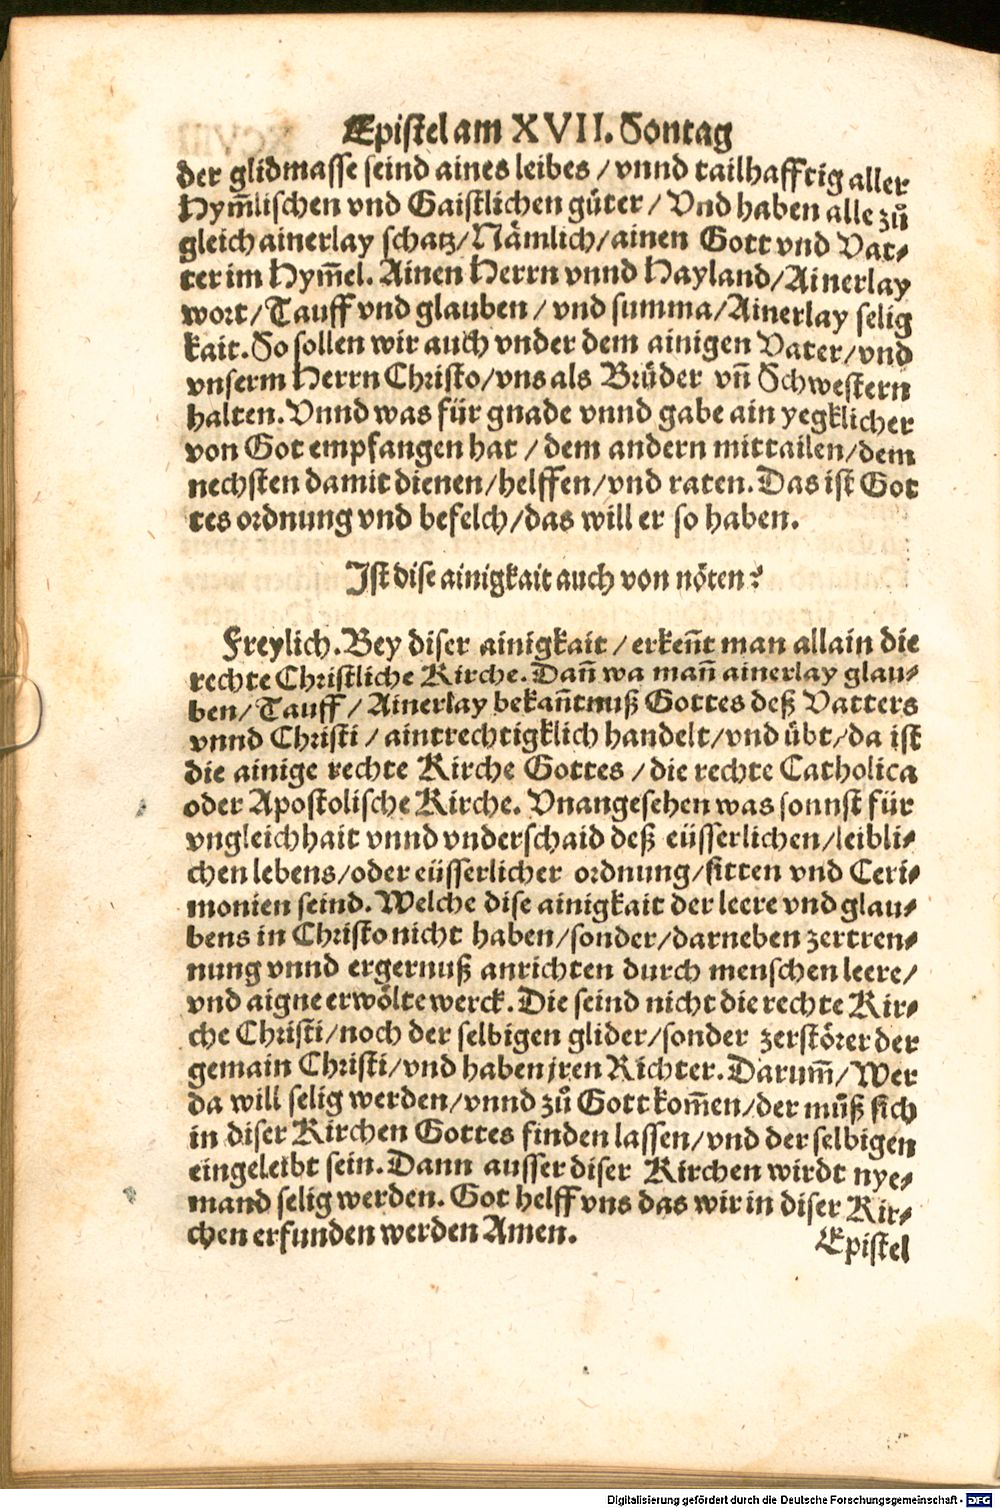 Epistel am XVII. Sontag
der glidmasse seind aines leibes / vnnd tailhafftig aller
Hym̃lischen vnd Gaistlichen güter / Vnd haben alle zů
gleich ainerlay schatz / Nämlich / ainen Gott vnd Vat-
ter im Hym̃el. Ainen Herrn vnnd Hayland / Ainerlay
wort / Tauff vnd glauben / vnd summa / Ainerlay selig
kait. So sollen wir auch vnder dem ainigen Vater / vnd
vnserm Herrn Christo / vns als Brüder vñ Schwestern
halten. Vnnd was für gnade vnnd gabe ain yegklicher
von Got empfangen hat / dem andern mittailen / dem
nechsten damit dienen / helffen / vnd raten. Das ist Got
tes ordnung vnd befelch / das will er so haben.
Ist dise ainigkait auch von nöten?
Freylich. Bey diser ainigkait / erkeñt man allain die
rechte Christliche Kirche. Dañ wa mañ ainerlay glau-
ben / Tauff / Ainerlay bekañtnuß Gottes deß Vatters
vnnd Christi / aintrechtigklich handelt / vnd übt / da ist
die ainige rechte Kirche Gottes / die rechte Catholica
oder Apostolische Kirche. Vnangesehen was sonnst für
vngleichhait vnnd vnderschaid deß eüsserlichen / leibli-
chen lebens / oder eüsserlicher ordnung / sitten vnd Ceri-
monien seind. Welche dise ainigkait der leere vnd glau-
bens in Christo nicht haben / sonder / darneben zertren-
nung vnnd ergernuß anrichten durch menschen leere /
vnd aigne erwölte werck. Die seind nicht die rechte Kir-
che Christi / noch der selbigen glider / sonder zerstörer der
gemain Christi / vnd haben jren Richter. Darum̃ / Wer
da will selig werden / vnnd zů Gott kom̃en / der můß sich
in diser Kirchen Gottes finden lassen / vnd der selbigen
eingeleibt sein. Dann ausser diser Kirchen wirdt nye-
mand selig werden. Got helff vns das wir in diser Kir-
chen erfunden werden Amen.
Epistel
Digitalisierung gefördert durch die Deutsche Forschungsgemeinschaft - DFG